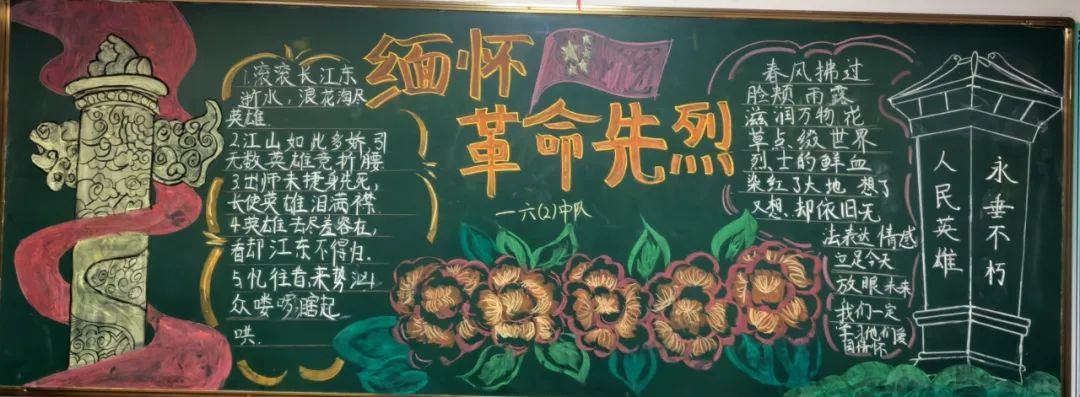 缅怀
革命先烈
一六(2)中队
1.滚滚长江东
逝水，浪花淘尽
英雄.
2.江山如此多娇 引
无数英雄竞折腰
3.出师未捷身先死，
长使英雄泪满襟.
4.英雄去尽羞容在，
看却江东不得归.
5.忆往昔,来势
众喽啰,瞎起
哄.
春风拂过
脸颊,雨露
滋润万物 花
草点缀世界
烈士的鲜血
染红了大地 想了
又想,却依旧无
法表达情感
立足今天
放眼未来
我们一定
学习他们爱
国情怀
人民英雄
永垂不朽